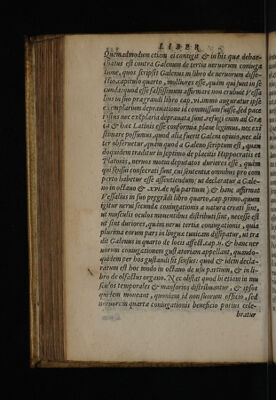 LIBER
Quemadmodum etiam ei contigit & in his quæ debac-
chatus est contra Galenum de tertia neruorum coniuga-
tione, quos scripsit Galenus in libro de neruorum disse-
ctio. capitulo quarto, molliores esse, quàm qui sunt in se
cunda: quod esse falsissimum affirmare non erubuit Vessa
lius in suo prægrandi libro cap. vi. immo auguratur ipse
exemplarium deprauatione id commissum fuisse, sed pace
ipsius nec exemplaria deprauata sunt, refugi enim ad Græ
ca & hæc Latinis esse conformia plane legimus, nec exi
stimare possumus, quod alia fuerit Galeni opinio, nec ali
ter obseruetur, quàm quod à Galeno scriptum est, quan
doquidem traditur in septimo de placitis Hippocratis et
Platonis, neruos motui deputatos duriores esse, quàm
qui sensui consecrati sunt, cui sententiæ omnibus pro com
perto habetur esse assentiendum: ut declaratur à Gale-
no in octauo & xvi. de usu partium) & hanc affirmat
Vessalius in suo prægrandi libro quarto, cap. primo. quum
igitur nerui secundæ coniugationis à natura creati sint,
ut musculis oculos mouentibus distributi sint, necesse est
ut sint duriores, quàm nerui tertiæ coniugationis, quia
plurima eorum pars in linguæ tunicam dissipatur, ut tra
dit Galenus in quarto de locis affect. cap. ii. & hanc ner
uorum coniugationem gustatoriam appellant, quando-
quidem per hos gustandi fit sensus: quod & idem decla-
ratum est hoc modo in octauo de usu partium, & in li-
bro de olfactus organo. Nec obstat quod hi etiam in mu
sculos temporales & mansorios distribuantur, & ipsos
quidem moueant, quoniam id non suorum officio, sed
neruorum quartæ coniugationis beneficio potius cele-
bratur